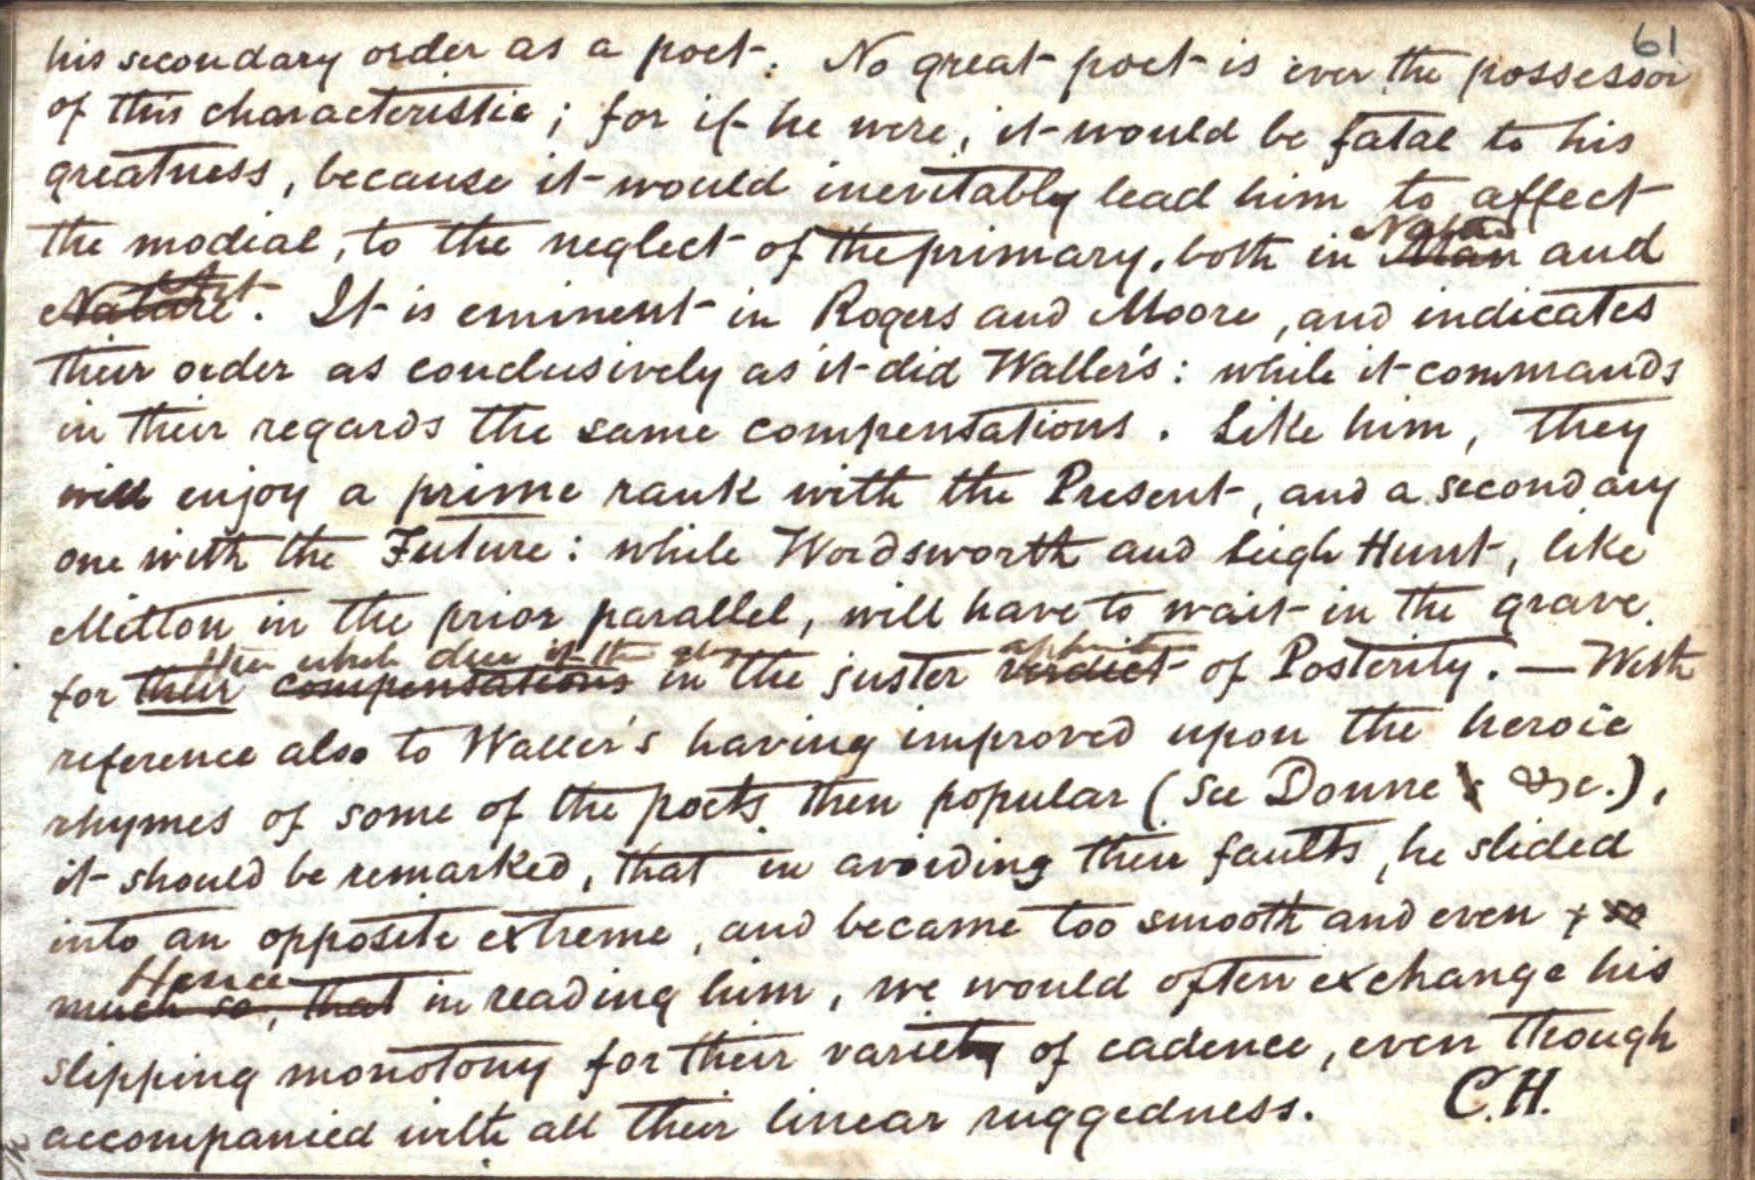 61
his secondary order as a poet. No great poet is ever the possessor
of this characteristic; for if he were, it would be fatal to his
greatness, because it would inevitably lead him to affect
the modial, to the neglect of the primary, both in Man and
Nature
Nature. It is eminent in Rogers and Moore, and indicates
Art
their order as conclusively as it did Waller's: while it commands
in their regards the same compensations. Like him, they
will enjoy a prime rank with the Present, and a secondary
one with the Future: while Wordsworth and Leigh Hunt, like
Milton in the prior parallel, will have to wait in the grave
for their compensations in the juster verdict of Posterity. — With
reference also to Waller's having improved upon the heroic
rhymes of some of the poets then popular (See Donne &c.),
it should be remarked, that in avoiding their faults, he slided
into an opposite extreme, and became too smooth and even, so
Hence
much so, that in reading him, we would often exchange his
slipping monotony for their variety of cadence, even though
accompanied with all their linear ruggedness. C.H.